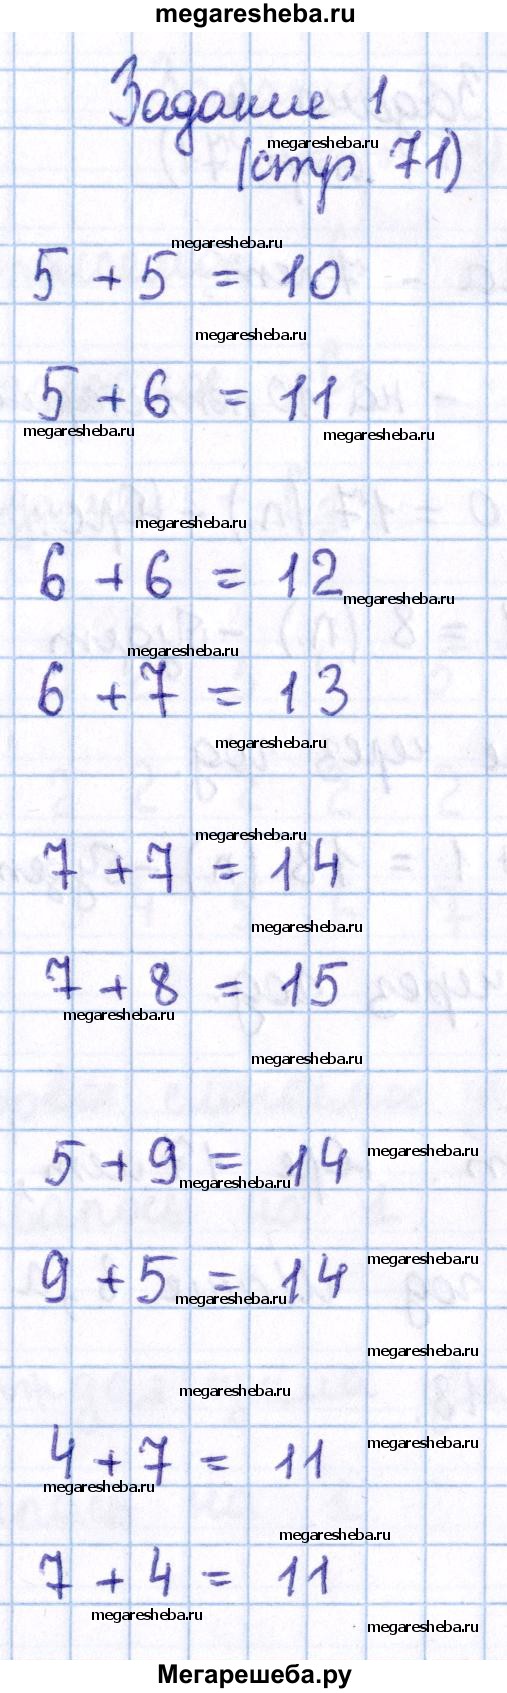 megaresheba.ru
Задание 1
megaresheba.ru
(стр. 71)
megaresheba.ru
5 + 5 = 10
megaresheba.ru
5 + 6 = 11
megaresheba.ru
megaresheba.ru
megaresheba.ru
6 + 6 = 12
megaresheba.ru
megaresheba.ru
6 + 7 = 13
megaresheba.ru
megaresheba.ru
7 + 7 = 14
megaresheba.ru
7 + 8 = 15
megaresheba.ru
megaresheba.ru
megaresheba.ru
5 + 9 = 14
megaresheba.ru
megaresheba.ru
9 + 5 = 14
megaresheba.ru
megaresheba.ru
megaresheba.ru
megaresheba.ru
4 + 7 = 11
megaresheba.ru
megaresheba.ru
7 + 4 = 11
megaresheba.ru
megaresheba.ru
Мегарешеба.ру